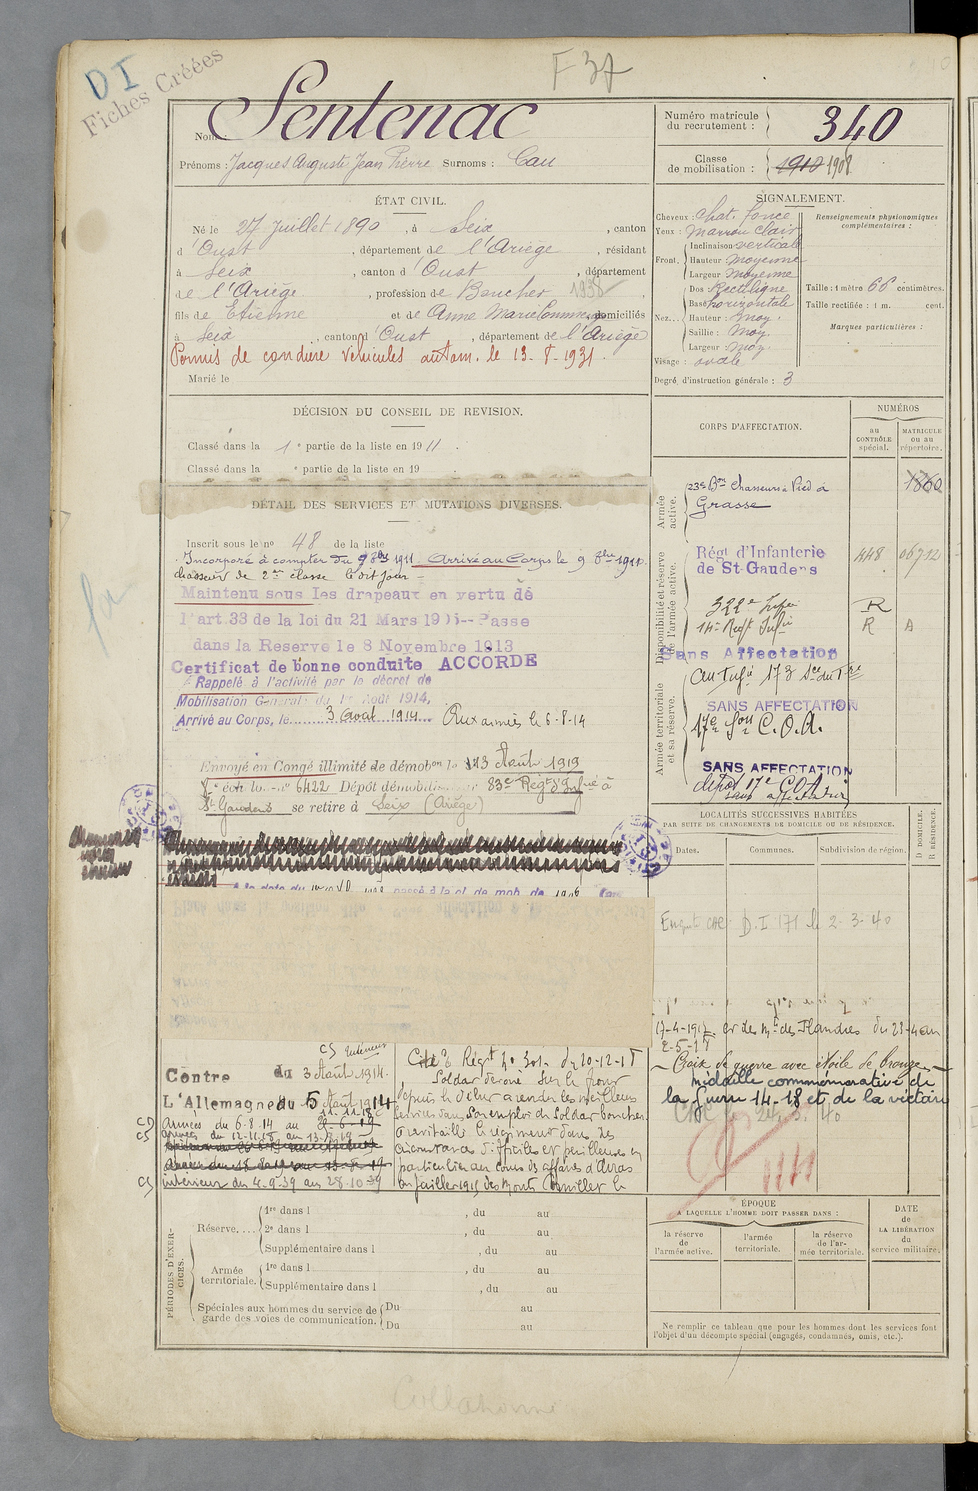 D I
Fiches Créées
F 37
Nom : Sentenac
Prénoms : Jacques Auguste Jean Pierre Surnoms : Cau
Numéro matricule
du recrutement :
340
Classe
de mobilisation :
1910 1908
ÉTAT CIVIL.
Né le 27 Juillet 1890, à Seix, canton
d'Oust, département de l'Ariège, résidant
à Seix, canton d'Oust, département
de l'Ariège, profession de Boucher 1938
fils de Etienne et de Anne Marie domiciliés
à Seix, canton d'Oust, département de l'Ariège
Permis de conduire véhicules autom. le 13-8-1931.
Marié le
SIGNALEMENT.
Cheveux : chat. foncé
Yeux : marron clair
Front. Inclinaison verticale
Hauteur moyenne
Largeur moyenne
Nez... Dos Rectiligne
Base horizontale
Hauteur : moy.
Saillie : moy.
Largeur : moy.
Visage : ovale
Degré d'instruction générale : 3
Renseignements physionomiques
complémentaires :
Taille : 1 mètre 66 centimètres.
Taille rectifiée : 1 m. cent.
Marques particulières :
DÉCISION DU CONSEIL DE REVISION.
Classé dans la 1e partie de la liste en 1911.
Classé dans la e partie de la liste en 19
DÉTAIL DES SERVICES ET MUTATIONS DIVERSES.
Inscrit sous le no 48 de la liste
Incorporé à compter du 9 8bre 1911. Arrivé au Corps le 9 8bre 1911.
chasseur de 2e classe le dit jour
Maintenu sous les drapeaux en vertu de
l'art. 33 de la loi du 21 Mars 1905-- Passe
dans la Reserve le 8 Novembre 1913
Certificat de bonne conduite ACCORDE
Rappelé à l'activité par le décret de
Mobilisation Générale du 1er Août 1914,
Arrivé au Corps, le 3 Août 1914. Aux armées le 6-8-14
Envoyé en Congé illimité de démobon le 13 Août 1919
éch no 6422 Dépôt démobilisateur 83e Régt d'Infrie à
St Gaudens se retire à Seix (Ariège)
CORPS D'AFFECTATION.
NUMÉROS
au
CONTRÔLE
spécial.
MATRICULE
ou au
répertoire.
Armée
active.
23e Bon Chasseurs à Pied à
Grasse
1860
Disponibilité et réserve
de l'armée active.
Régt d'Infanterie
de St-Gaudens
448 06712
322e Infie R
14e Regt Infie R A
Sans Affectation
Armée territoriale
et sa réserve.
SANS AFFECTATION
17e Son C.O.A.
SANS AFFECTATION
dépôt 17e COA
sans affectation
LOCALITÉS SUCCESSIVES HABITÉES
PAR SUITE DE CHANGEMENTS DE DOMICILE OU DE RÉSIDENCE.
Dates.
Communes.
Subdivision de région.
D DOMICILE.
R RÉSIDENCE.
D.I 171 le 2-3-40
CS Intérieur
Contre du 3 Août 1914.
L'Allemagne du 5 Août 1914
11.11.18
CD Armées du 6.8.14 au
CS armées du 12-11.18 au 13.8.19
CS intérieur du 4-9-39 au 28-10-39
Cité Régt no 301 du 10-12-18
Soldat dévoué sur le front
depuis le début a rendu les meilleurs
services dans son emploi de soldat boucher
a ravitaillé le régiment dans des
circonstances difficiles et périlleuses en
particulier au cours des affaires d'Arras
en juillet 1915 des Monts Cornillet le
17-4-1917 et des Mts des Flandres du 29-4 au
2-5-18
Croix de guerre avec étoile de bronze
médaille commémorative de
la guerre 14-18 et de la victoire
PÉRIODES D'EXERCICES.
Réserve.... 1re dans l , du au
2e dans l , du au
Supplémentaire dans l , du au
Armée
territoriale. 1re dans l , du au
Supplémentaire dans l , du au
Spéciales aux hommes du service de
garde des voies de communication. Du au
Du au
ÉPOQUE
A LAQUELLE L'HOMME DOIT PASSER DANS :
la réserve
de
l'armée active.
l'armée
territoriale.
la réserve
de l'ar-
mée territoriale.
DATE
de
LA LIBÉRATION
du
service militaire.
Ne remplir ce tableau que pour les hommes dont les services font
l'objet d'un décompte spécial (engagés, condamnés, omis, etc.).
Collationné